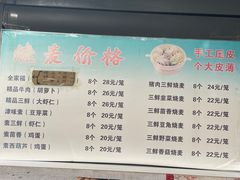 烧麦价格
手工压皮
个大皮薄
全家福 8个 28元/笼
精品牛肉（胡萝卜） 8个 26元/笼
精品三鲜（大虾仁） 8个 26元/笼
津味素（豆芽菜） 8个 20元/笼
素三鲜（虾仁） 8个 20元/笼
素茴香（鸡蛋） 8个 20元/笼
素西葫芦（鸡蛋） 8个 20元/笼
猪肉三鲜烧麦 8个 24元/笼
三鲜韭菜烧麦 8个 22元/笼
三鲜茴香烧麦 8个 22元/笼
三鲜豆角烧麦 8个 22元/笼
三鲜野菜烧麦 8个 22元/笼
三鲜香菇烧麦 8个 22元/笼